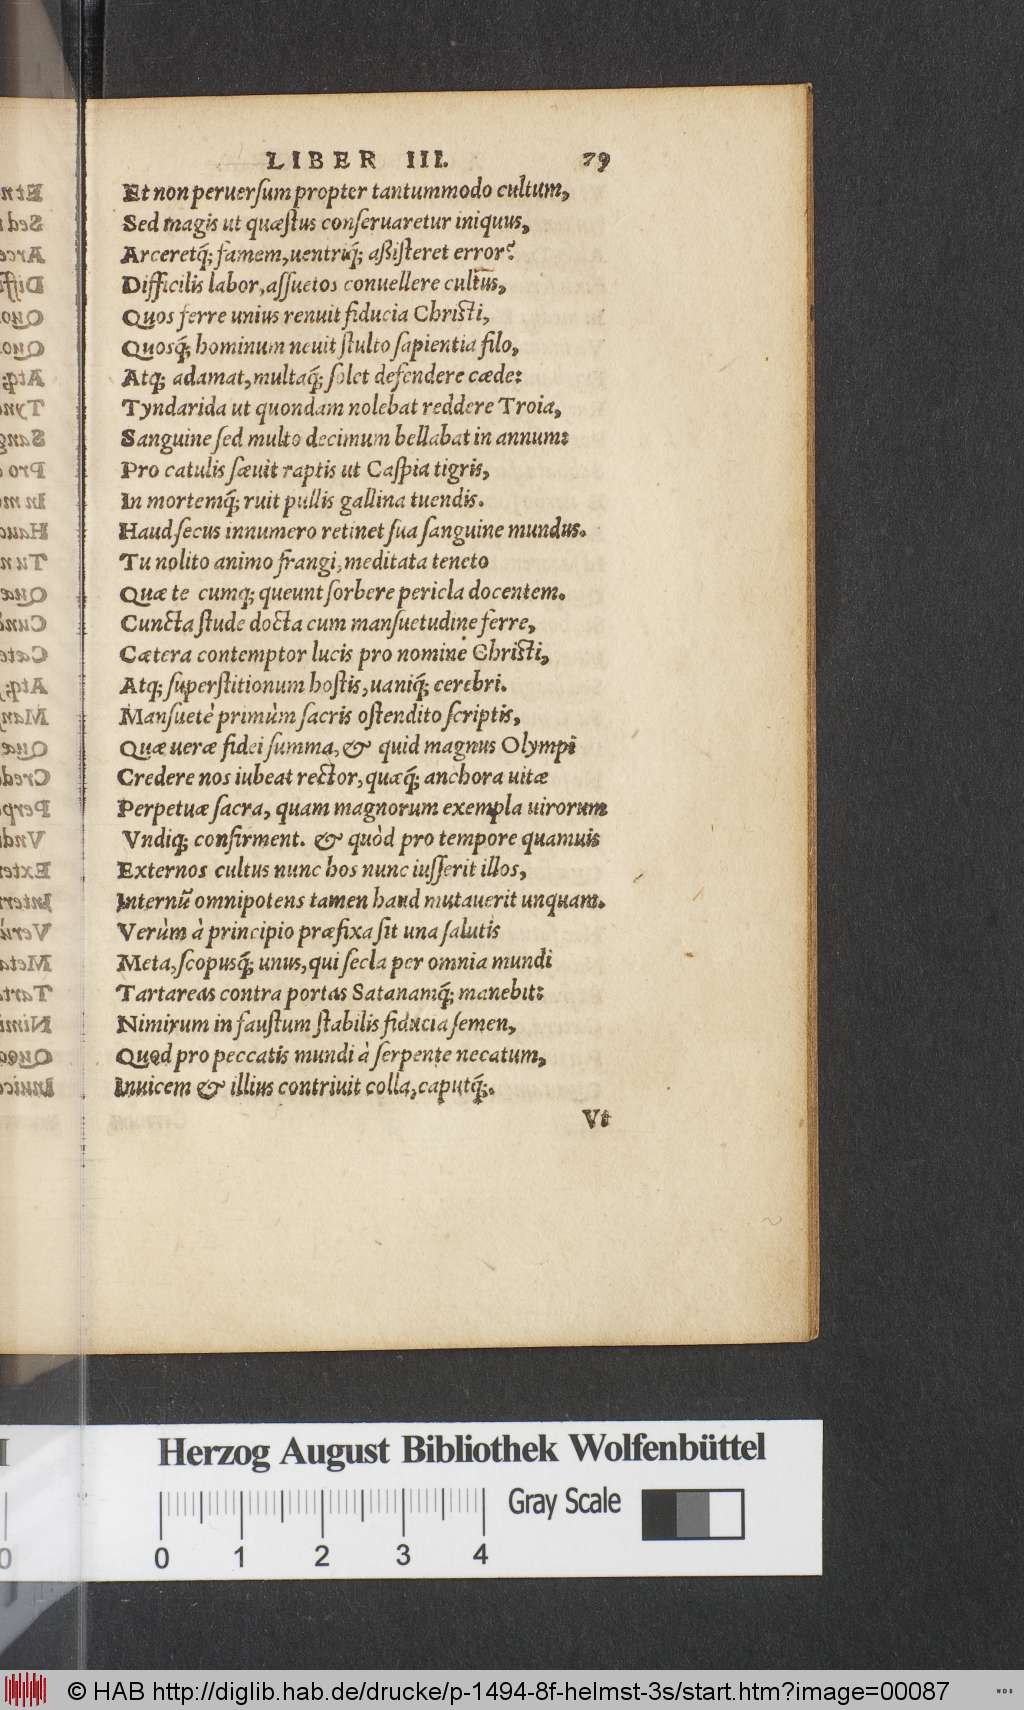 LIBER III. 79
Et non peruersum propter tantummodo cultum,
Sed magis ut quæstus conseruaretur iniquus,
Arceretq́; famem, uentriq́; aßisteret error?
Difficilis labor, assuetos conuellere cultus,
Quos ferre unius renuit fiducia Christi,
Quosq́; hominum neuit stulto sapientia filo,
Atq; adamat, multaq́; solet defendere cæde:
Tyndarida ut quondam nolebat reddere Troia,
Sanguine sed multo decimum bellabat in annum:
Pro catulis sæuit raptis ut Caspia tigris,
In mortemq́; ruit pullis gallina tuendis.
Haud secus innumero retinet sua sanguine mundus.
Tu nolito animo frangi, meditata teneto
Quæ te cumq; queunt sorbere pericla docentem.
Cuncta stude docta cum mansuetudine ferre,
Cætera contemptor lucis pro nomine Christi,
Atq; superstitionum hostis, uaniq́; cerebri.
Mansuetè primùm sacris ostendito scriptis,
Quæ ueræ fidei summa, & quid magnus Olympi
Credere nos iubeat rector, quæq́; anchora uitæ
Perpetuæ sacra, quam magnorum exempla uirorum
Vndiq; confirment. & quòd pro tempore quamuis
Externos cultus nunc hos nunc iusserit illos,
Internũ omnipotens tamen haud mutauerit unquam.
Verùm à principio præfixa sit una salutis
Meta, scopusq́; unus, qui secla per omnia mundi
Tartareas contra portas Satanamq́; manebit:
Nimirum in faustum stabilis fiducia semen,
Quod pro peccatis mundi à serpente necatum,
Inuicem & illius contriuit colla, caputq́;.
Vt
Herzog August Bibliothek Wolfenbüttel
Gray Scale
0 1 2 3 4
© HAB http://diglib.hab.de/drucke/p-1494-8f-helmst-3s/start.htm?image=00087